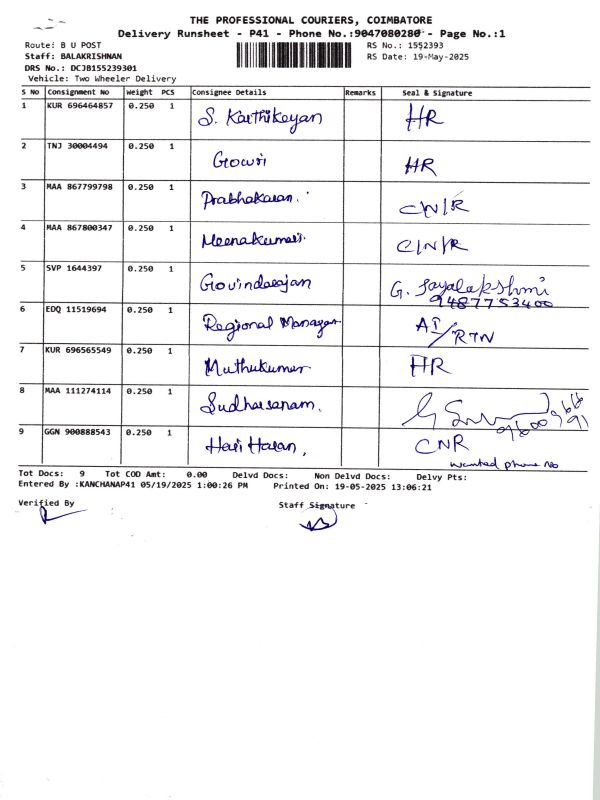 THE PROFESSIONAL COURIERS, COIMBATORE
Delivery Runsheet - P41 - Phone No.:9047080280 - Page No.:1
Route: B U POST RS No.: 1552393
Staff: BALAKRISHNAN RS Date: 19-May-2025
DRS No.: DCJB155239301
Vehicle: Two Wheeler Delivery
S No Consignment No Weight PCS Consignee Details Remarks Seal & Signature
1 KUR 696464857 0.250 1 S. Karthikeyan HR
2 TNJ 30004494 0.250 1 Gowri HR
3 MAA 867799798 0.250 1 Prabhakaran. CN/R
4 MAA 867800347 0.250 1 Meenakumari. C/N/R
5 SVP 1644397 0.250 1 Govindarajan G. Jayalakshmi
9487753400
6 EDQ 11519694 0.250 1 Regional Manager AI/RTN
7 KUR 696565549 0.250 1 Muthukumar HR
8 MAA 111274114 0.250 1 Sudharsanam.
9 GGN 900888543 0.250 1 Hari Haran, CNR
wanted phone no
Tot Docs: 9 Tot COD Amt: 0.00 Delvd Docs: Non Delvd Docs: Delvy Pts:
Entered By :KANCHANAP41 05/19/2025 1:00:26 PM Printed On: 19-05-2025 13:06:21
Verified By Staff Signature